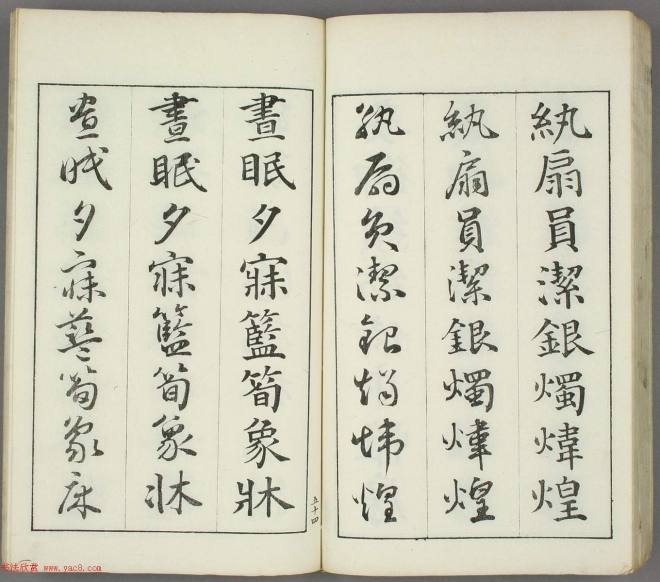 紈扇員潔銀燭煒煌
紈扇員潔銀燭煒煌
紈扇員潔銀燭煒煌
晝眠夕寐籃筍象牀
晝眠夕寐籃筍象牀
晝眠夕寐藍筍象床
五十四
书法欣赏 www.yac8.com